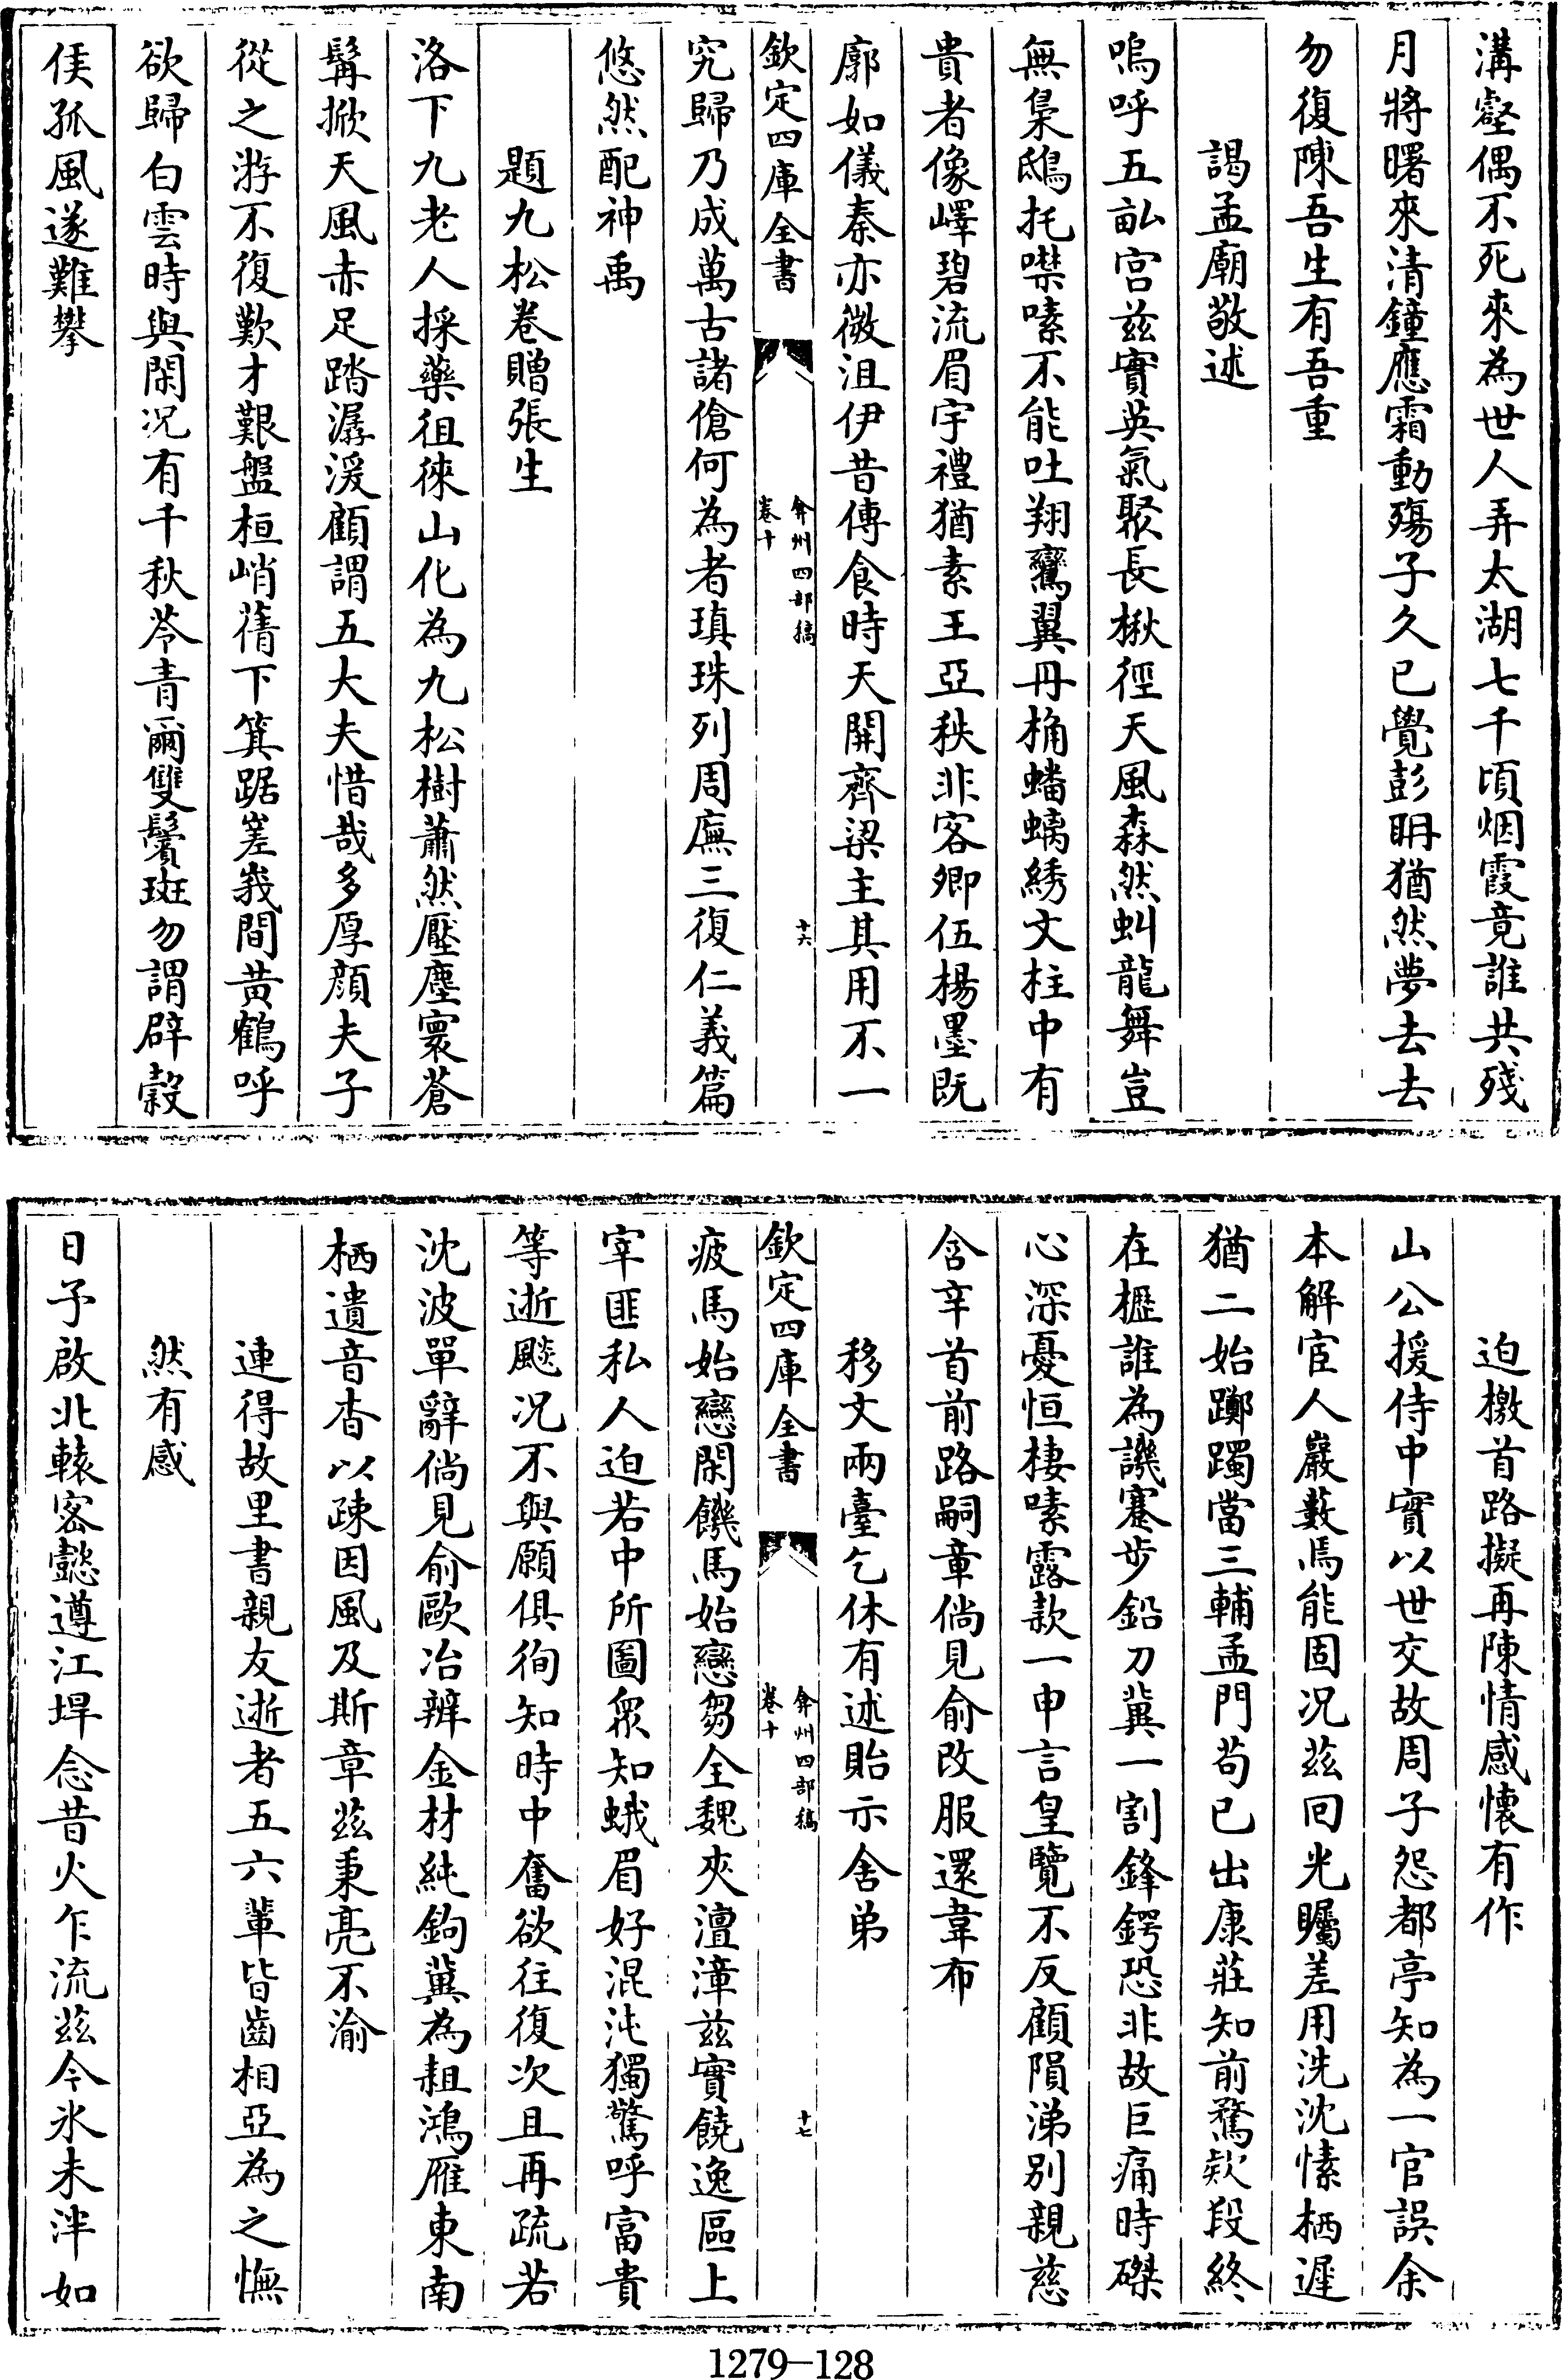 溝壑偶不死來為世人弄太湖七千頃烟霞竟誰共殘
月將曙來清鐘應霜動殤子久已覺彭𣆶猶然夢去去
勿復陳吾生有吾重
謁孟廟敬述
嗚呼五畝宫兹實英氣聚長楸徑天風森然虬龍舞豈
無梟鴟托噤嗉不能吐翔鸞翼丹桷蟠螭綉文柱中有
貴者像嶧碧流眉宇禮猶素王亞秩非客卿伍楊墨既
廓如儀秦亦微沮伊昔傳食時天開齊梁主其用不一
欽定四庫全書
弇州四部稿
卷十
十六
究歸乃成萬古諸傖何為者瑱珠列周廡三復仁義篇
悠然配神禹
題九松卷贈張生
洛下九老人採藥徂徠山化為九松樹蕭然壓塵寰蒼
髯掀天風赤足踏潺湲顧謂五大夫惜哉多厚顔夫子
從之游不復歎才艱盤桓峭蒨下箕踞嵳峩間黄鶴呼
欲歸白雲時與閑况有千秋苓青爾雙鬢斑勿謂辟穀
侯孤風遂難攀
迫檄首路擬再陳情感懷有作
山公援侍中實以世交故周子怨都亭知為一官誤余
本解宦人巖藪焉能固况兹回光矚差用洗沈愫栖遲
猶二始躑躅當三輔孟門苟已出康莊知前騖欵段終
在櫪誰為譏蹇步鉛刀冀一割鋒鍔恐非故巨痛時磔
心深憂恒棲嗉露款一申言皇覽不反顧隕涕别親慈
含辛首前路嗣章倘見俞改服還韋布
移文兩臺乞休有述貽示舍弟
欽定四庫全書
弇州四部稿
卷十
十七
疲馬始戀閑饑馬始戀芻全魏夾澶漳兹實饒逸區上
宰匪私人迫若中所圖衆知蛾眉好混沌獨驚呼富貴
等逝飈况不與願俱徇知時中奮欲往復次且再疏若
沈波單辭倘見俞歐冶辨金材純鉤冀為耝鴻雁東南
栖遺音杳以疎因風及斯章兹秉亮不渝
連得故里書親友逝者五六輩皆齒相亞為之憮
然有感
日予啟北轅宻懿遵江垾念昔火乍流兹今氷未泮如
1279-128